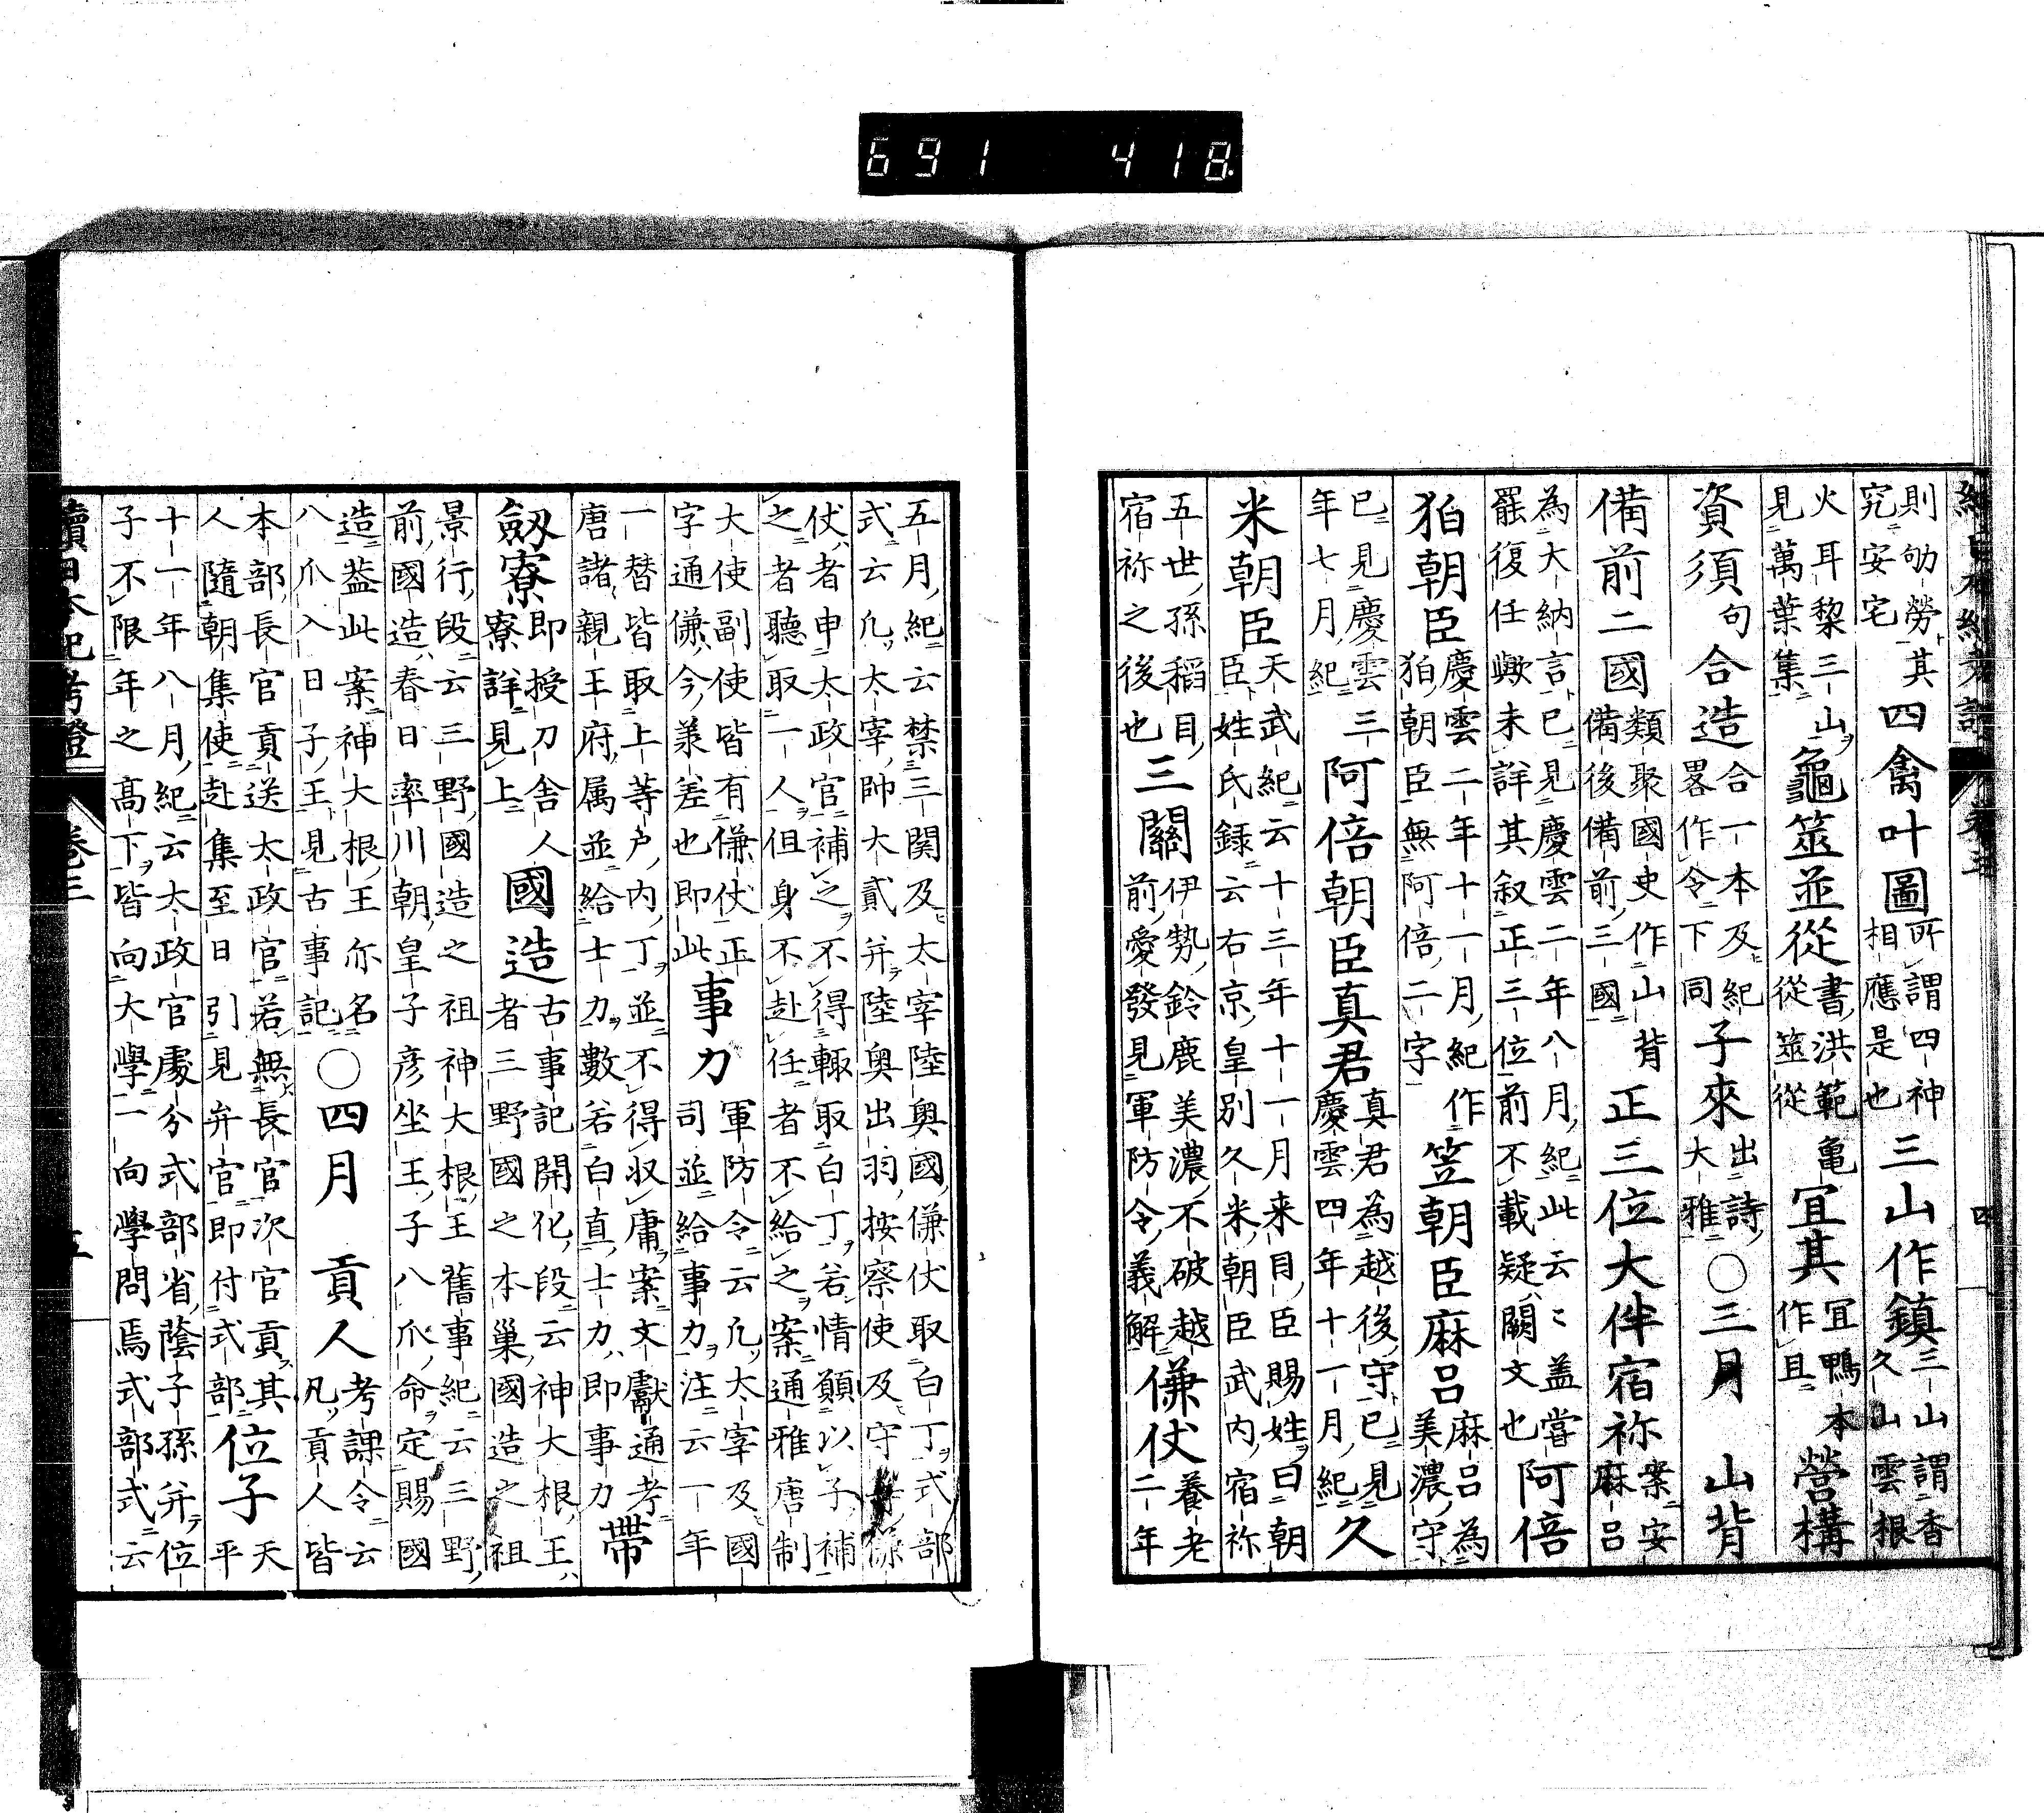 691 418
續日本紀考證 卷三 四
則劬勞其
究安宅
四禽叶圖
所謂四神
相應是也
三山作鎮
三山謂香
久山雲根
火耳黎三山
見萬葉集
龜筮並從
書洪範龜
從筮從
宜其
宜鴨本
作且
營構
資須
句
合造
合一本及紀
畧作令下同
子來
出詩
大雅
〇三月
山背
備前二國
類聚國史作山背
備後備前三國
正三位大伴宿祢
案安
麻呂
為大納言已見慶雲二年八月紀此云〻盖嘗
罷復任歟未詳其叙正三位前不載疑闕文也
阿倍
狛朝臣
慶雲二年十一月紀作
狛朝臣無阿倍二字
笠朝臣麻呂
麻呂為
美濃守
已見慶雲三
年七月紀
阿倍朝臣真君
真君為越後守已見
慶雲四年十一月紀
久
米朝臣
天武紀云十三年十一月来目臣賜姓曰朝
臣姓氏録云右京皇別久米朝臣武内宿祢
五世孫稻目
宿祢之後也
三關
伊勢鈴鹿美濃不破越
前愛發見軍防令義解
傔仗
養老
二年
五月紀云禁三関及太宰陸奥國傔仗取白丁式部
式云凡太宰帥大貳并陸奥出羽按察使及守
仗者申太政官補之不得輙取白丁若情願以子補
之者聽取一人但身不赴任者不給之案通雅唐制
大使副使皆有傔仗正
字通傔今業差也即此
事力
軍防令云凡太宰及國
司並給事力注云一年
一替皆取上等戸内丁並不得収庸案文獻通考
唐諸親王府属並給士力數若白真士力即事力
帶
劔寮
即授刀舎人
寮詳見上
國造
古事記開化段云神大根王
者三野國之本巢國造之祖
景行段云三野國造之祖神大根王舊事紀云三野
前國造春日率川朝皇子彦坐王子八爪命定賜國
造葢此案神大根王亦名
八爪入日子王見古事記
〇四月
貢人
考課令云
凡貢人皆
本部長官貢送太政官若無長官次官貢其
人隨朝集使赴集至日引見弁官即付式部
位子
天
平
十一年八月紀云太政官處分式部省蔭子孫并位
子不限年之髙下皆向大學一向學問焉式部式云
續日本紀考證 卷三 五